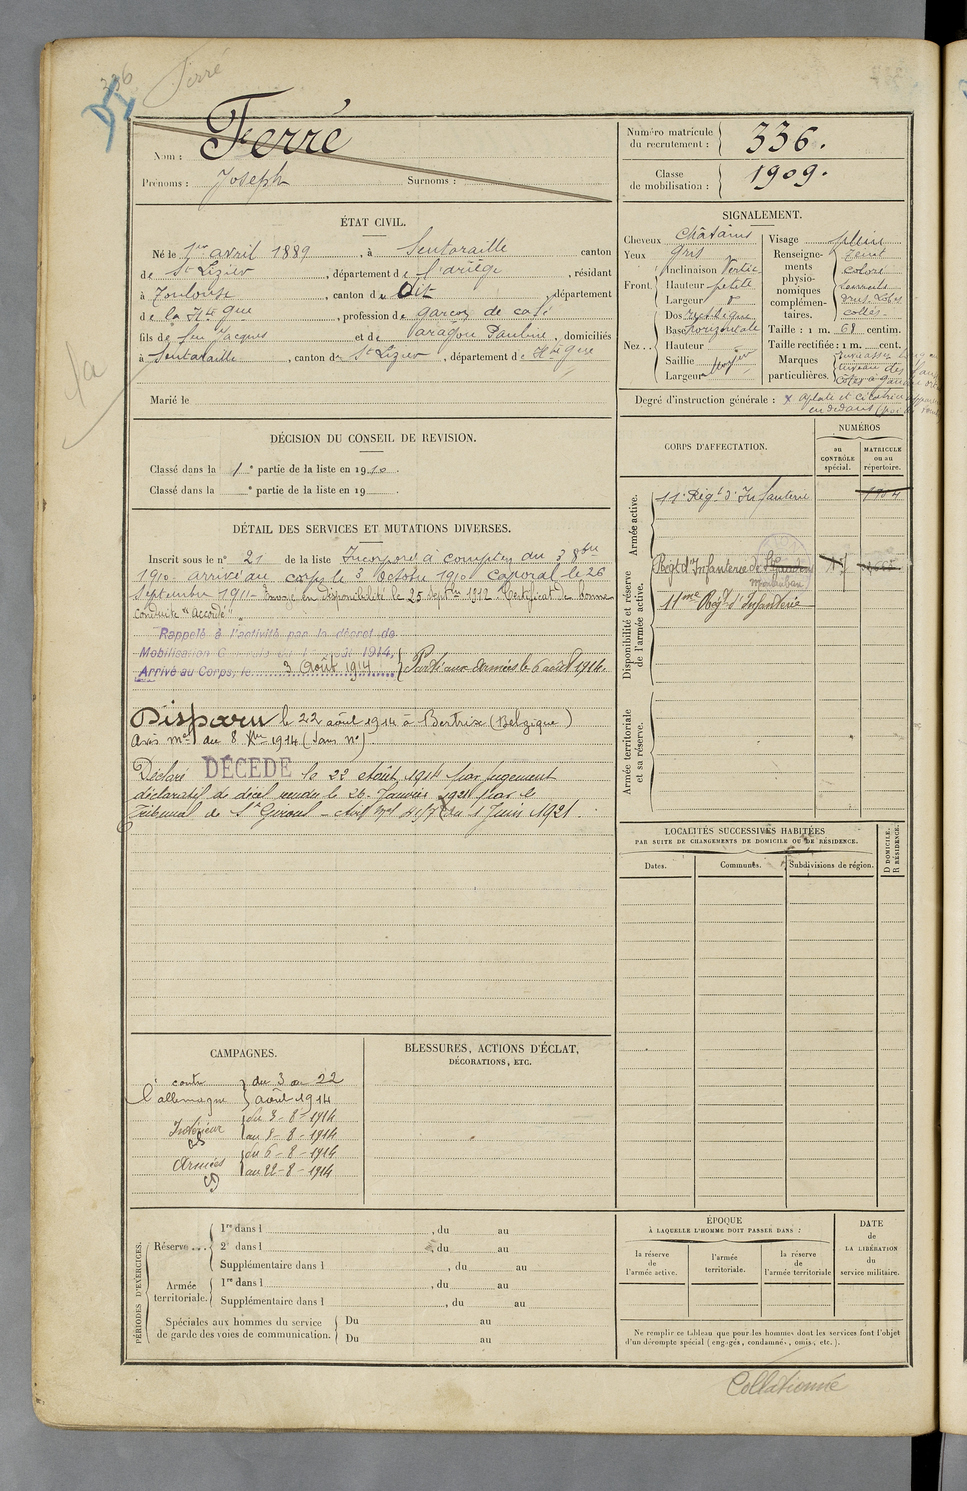 336
Ferré
Nom : Ferré
Prénoms : Joseph Surnoms :
Numéro matricule du recrutement : 336.
Classe de mobilisation : 1909.
ÉTAT CIVIL.
Né le 1er avril 1889, à Sentaraille canton
de St Lizier, département de l'ariège, résidant
à Toulouse, canton du dit, département
de la Hte Gne, profession de garçon de café
fils de feu Jacques et de Paragon Pauline, domiciliés
à Sentaraille, canton de St Lizier, département de Hte Gne
Marié le
SIGNALEMENT.
Cheveux châtains
Yeux gris
Front. Inclinaison Vertic
Hauteur petite
Largeur d
Nez . . Dos rectiligne
Base horizontale
Hauteur
Saillie
Largeur Moyen
Visage plein
Renseignements physionomiques complémentaires. Teint
coloré
collés
Taille : 1 m. 68 centim.
Taille rectifiée : 1 m. cent.
Marques particulières.
Degré d'instruction générale :
DÉCISION DU CONSEIL DE REVISION.
Classé dans la 1e partie de la liste en 1910.
Classé dans la e partie de la liste en 19 .
DÉTAIL DES SERVICES ET MUTATIONS DIVERSES.
Inscrit sous le n° 21 de la liste Incorporé à compter du 3 8bre
1910 arrivé au corps le 3 Octobre 1910 caporal le 26
Septembre 1911 - Envoyé en disponibilité le 25 septbre 1912 Certificat de bonne
conduite "accordé"
Rappelé à l'activité par le décret de
Mobilisation Générale du 1er août 1914,
Arrivé au Corps, le 3 Août 1914 Parti aux Armées le 6 août 1914.
Disparu le 22 août 1914 à Bertrix (Belgique)
avis mel du 8 Xbre 1914 (sans no)
Déclaré DÉCÉDÉ le 22 Août 1914 par jugement
déclaratif de décès rendu le 26 Janvier 1921 par le
Tribunal de St Girons - avis mel du 1 Juin 1921.
CORPS D'AFFECTATION.
NUMÉROS
au CONTRÔLE spécial.
MATRICULE ou au répertoire.
Armée active.
11e Régt d'Infanterie
Disponibilité et réserve de l'armée active.
Régt d'Infanterie de
Montauban
11me Régt d'Infanterie
Armée territoriale et sa réserve.
LOCALITÉS SUCCESSIVES HABITÉES
PAR SUITE DE CHANGEMENTS DE DOMICILE OU DE RÉSIDENCE.
Dates. Communes. Subdivisions de région. D DOMICILE. R RÉSIDENCE.
CAMPAGNES.
contre l'allemagne du 3 au 22 août 1914
Intérieur du 3-8-1914
au 5-8-1914
Armées du 6-8-1914
au 22-8-1914
BLESSURES, ACTIONS D'ÉCLAT,
DÉCORATIONS, ETC.
PÉRIODES D'EXERCICES.
Réserve . . . 1re dans l , du au
2e dans l , du au
Supplémentaire dans l , du au
Armée territoriale. 1re dans l , du au
Supplémentaire dans l , du au
Spéciales aux hommes du service de garde des voies de communication. Du au
Du au
ÉPOQUE
À LAQUELLE L'HOMME DOIT PASSER DANS :
la réserve de l'armée active.
l'armée territoriale.
la réserve de l'armée territoriale
DATE de LA LIBÉRATION du service militaire.
Ne remplir ce tableau que pour les hommes dont les services font l'objet
d'un décompte spécial (engagés, condamnés, omis, etc.).
Collationné